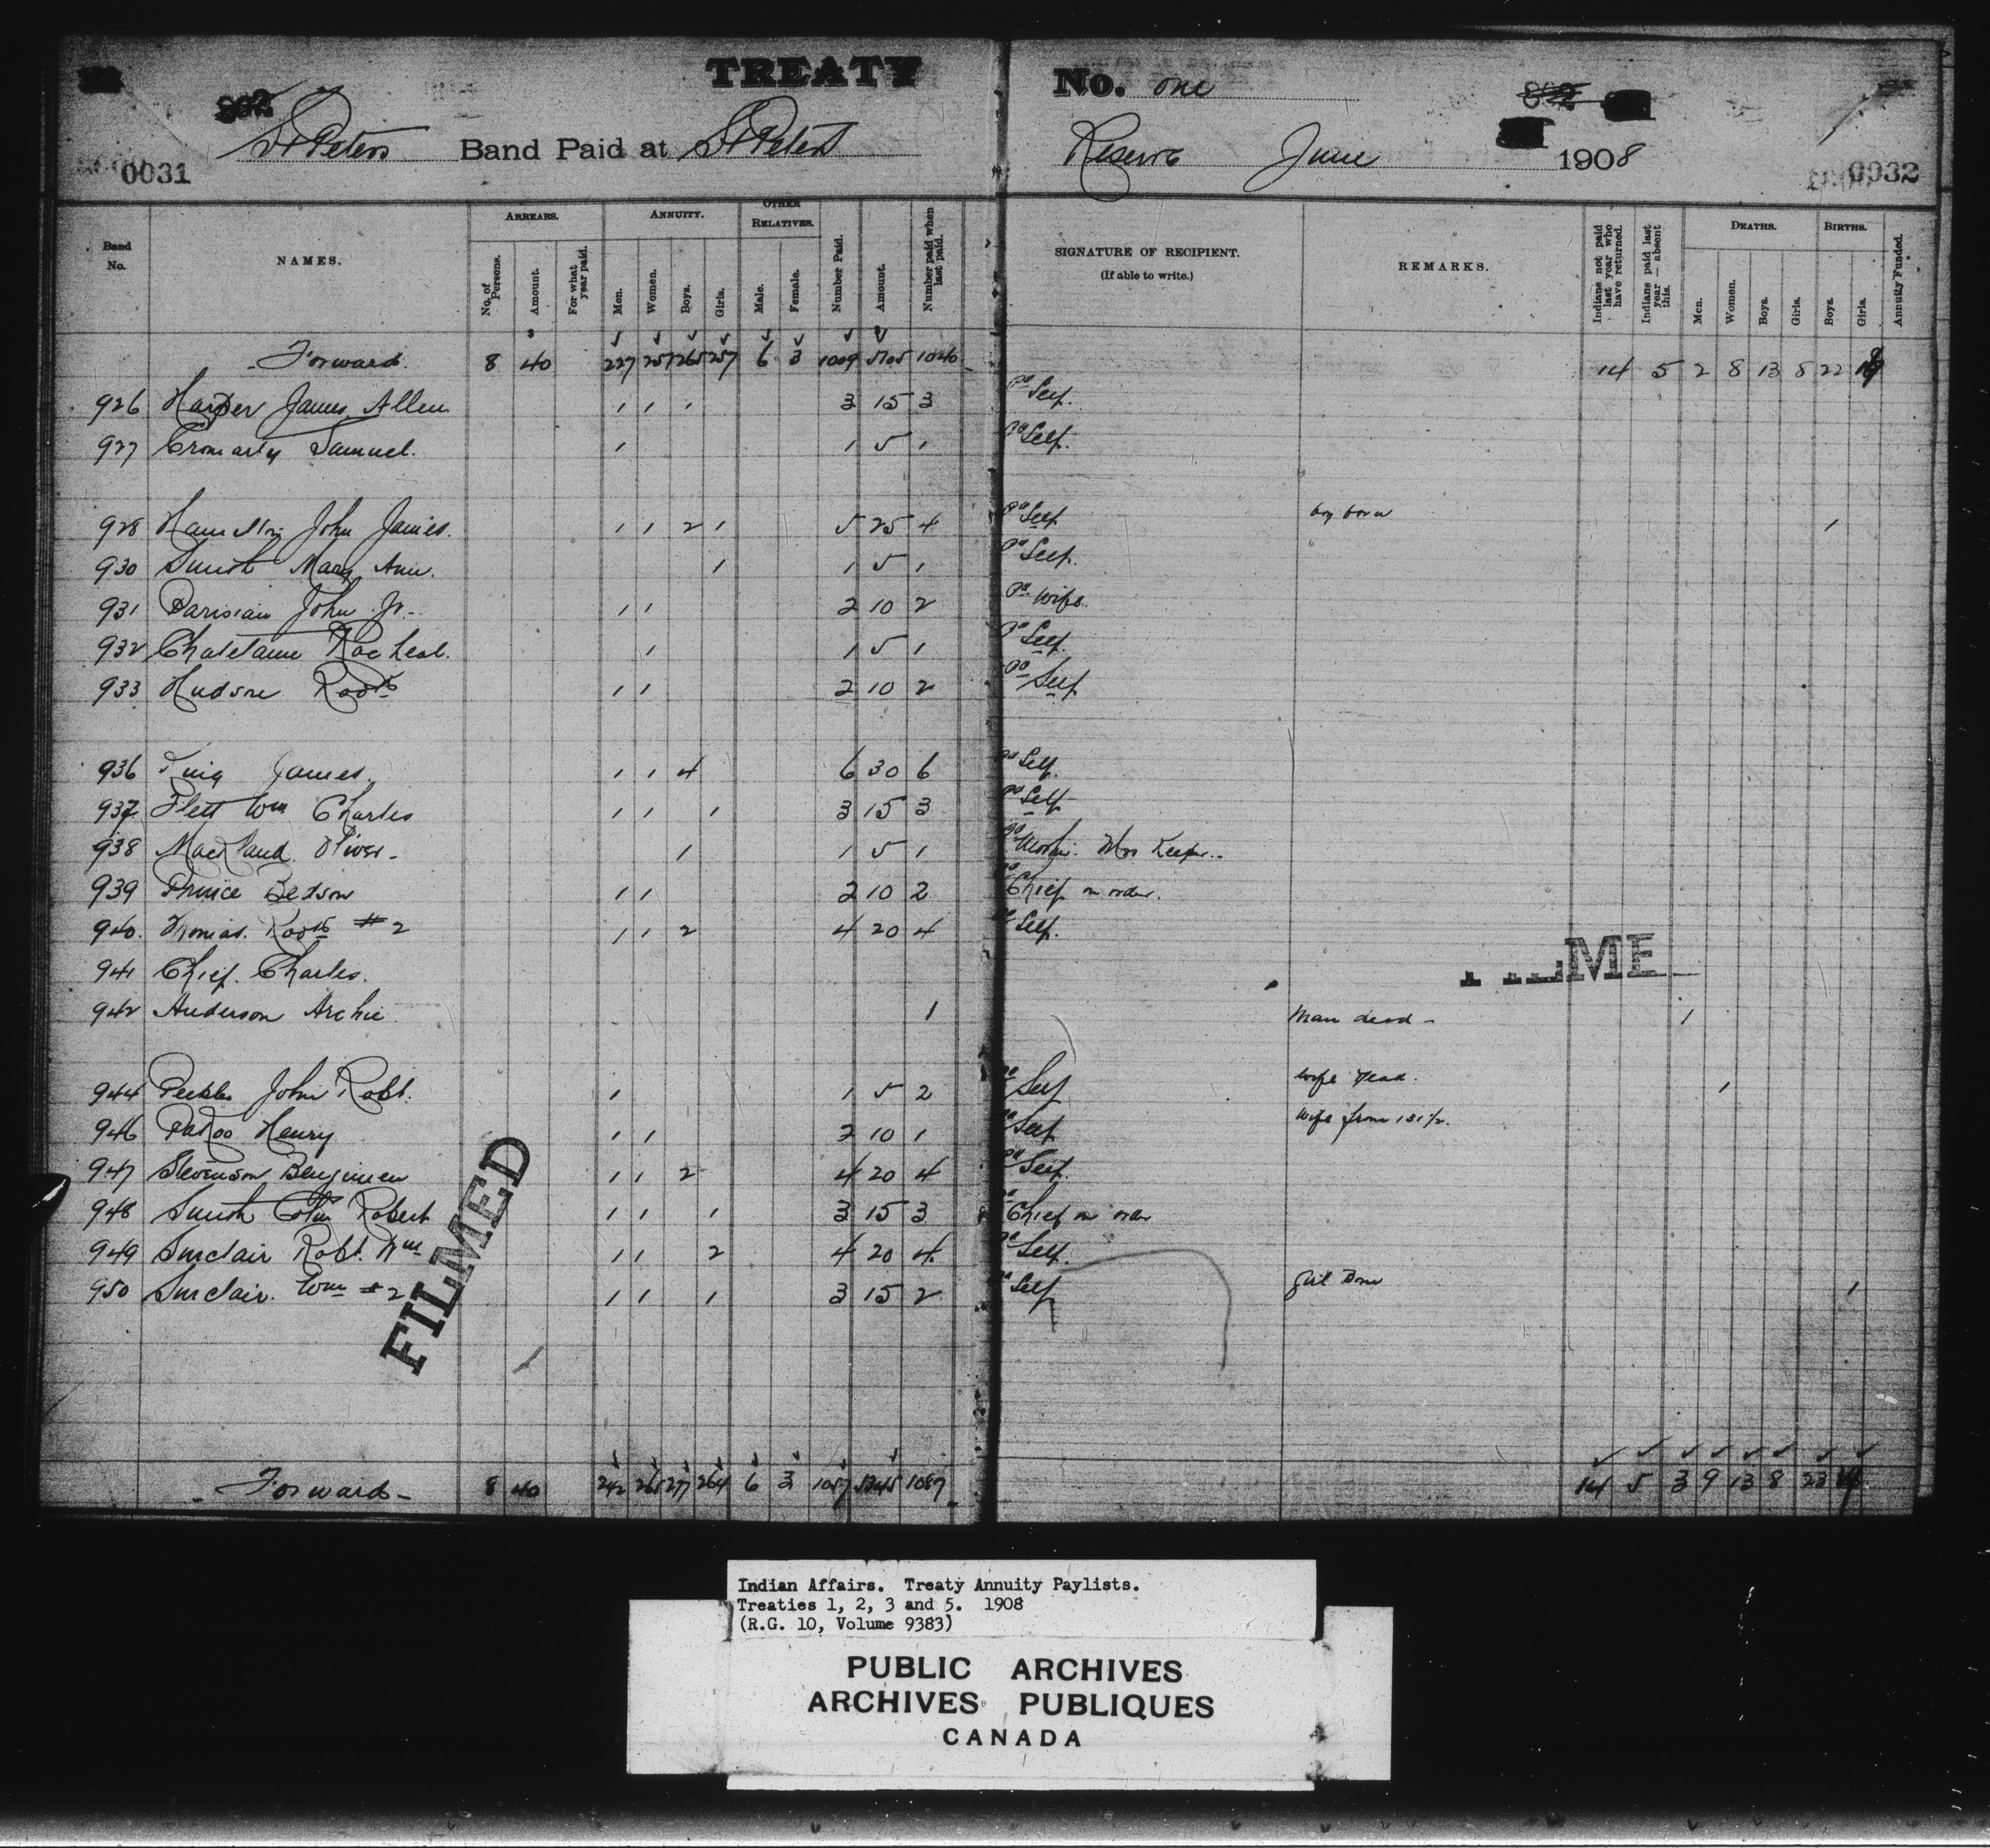 TREATY No. one
St Peters Band Paid at St Peters Reserve June 1908
0031 0032
Band No. NAMES. ARREARS. ANNUITY. OTHER RELATIVES. Number Paid. Amount. Number paid when last paid. SIGNATURE OF RECIPIENT. (If able to write.) REMARKS. Indians not paid last year who have returned. Indians paid last year — absent this. DEATHS. BIRTHS. Annuity Funded.
No. of Persons. Amount. For what year paid. Men. Women. Boys. Girls. Male. Female. Men. Women. Boys. Girls. Boys. Girls.
Forward. 8 40 227 251 265 257 6 3 1009 5105 1026 14 5 2 8 13 8 22
926 Harper James Allen 1 1 1 3 15 3 Pd Self.
927 Cromarty Samuel. 1 1 5 1 Pd Self.
928 Hamilton John James. 1 1 2 1 5 25 4 Pd Self boy born 1
930 Smith Mary Ann. 1 1 5 1 Pd Self.
931 Parisian John Jr. 1 1 2 10 2 Pd Wife.
932 Racheal. 1 1 5 1 Pd Self.
933 Hudson Robt 1 1 2 10 2 Pd Self
936 King James. 1 1 4 6 30 6 Pd Self.
937 Flett Wm Charles 1 1 1 3 15 3 Pd Self
938 Oliver 1 1 5 1 Pd Mrs Keeper
939 Prince Bedson 1 1 2 10 2 Pd Chief on order.
940. Thomas. Robt #2 1 1 2 4 20 4 Pd Self.
941 Chief. Charles.
942 Anderson Archie 1 Man dead - 1
944 Peebles John Robt. 1 1 5 2 Pd Self wife dead. 1
946 Henry 1 1 2 10 1 Pd Self wife from 131½.
947 Stevenson Benjimen 1 1 2 4 20 4 Pd Self.
948 Smith Robert 1 1 1 3 15 3 Pd Chief on order
949 Sinclair Robt. Wm 1 1 2 4 20 4 Pd Self.
950 Sinclair. Wm #2 1 1 1 3 15 2 Pd Self Girl Born 1
FILMED
Forward 8 40 242 265 277 264 6 3 1057 5345 1067 14 5 3 9 13 8 23
Indian Affairs. Treaty Annuity Paylists.
Treaties 1, 2, 3 and 5. 1908
(R.G. 10, Volume 9383)
PUBLIC ARCHIVES
ARCHIVES PUBLIQUES
CANADA